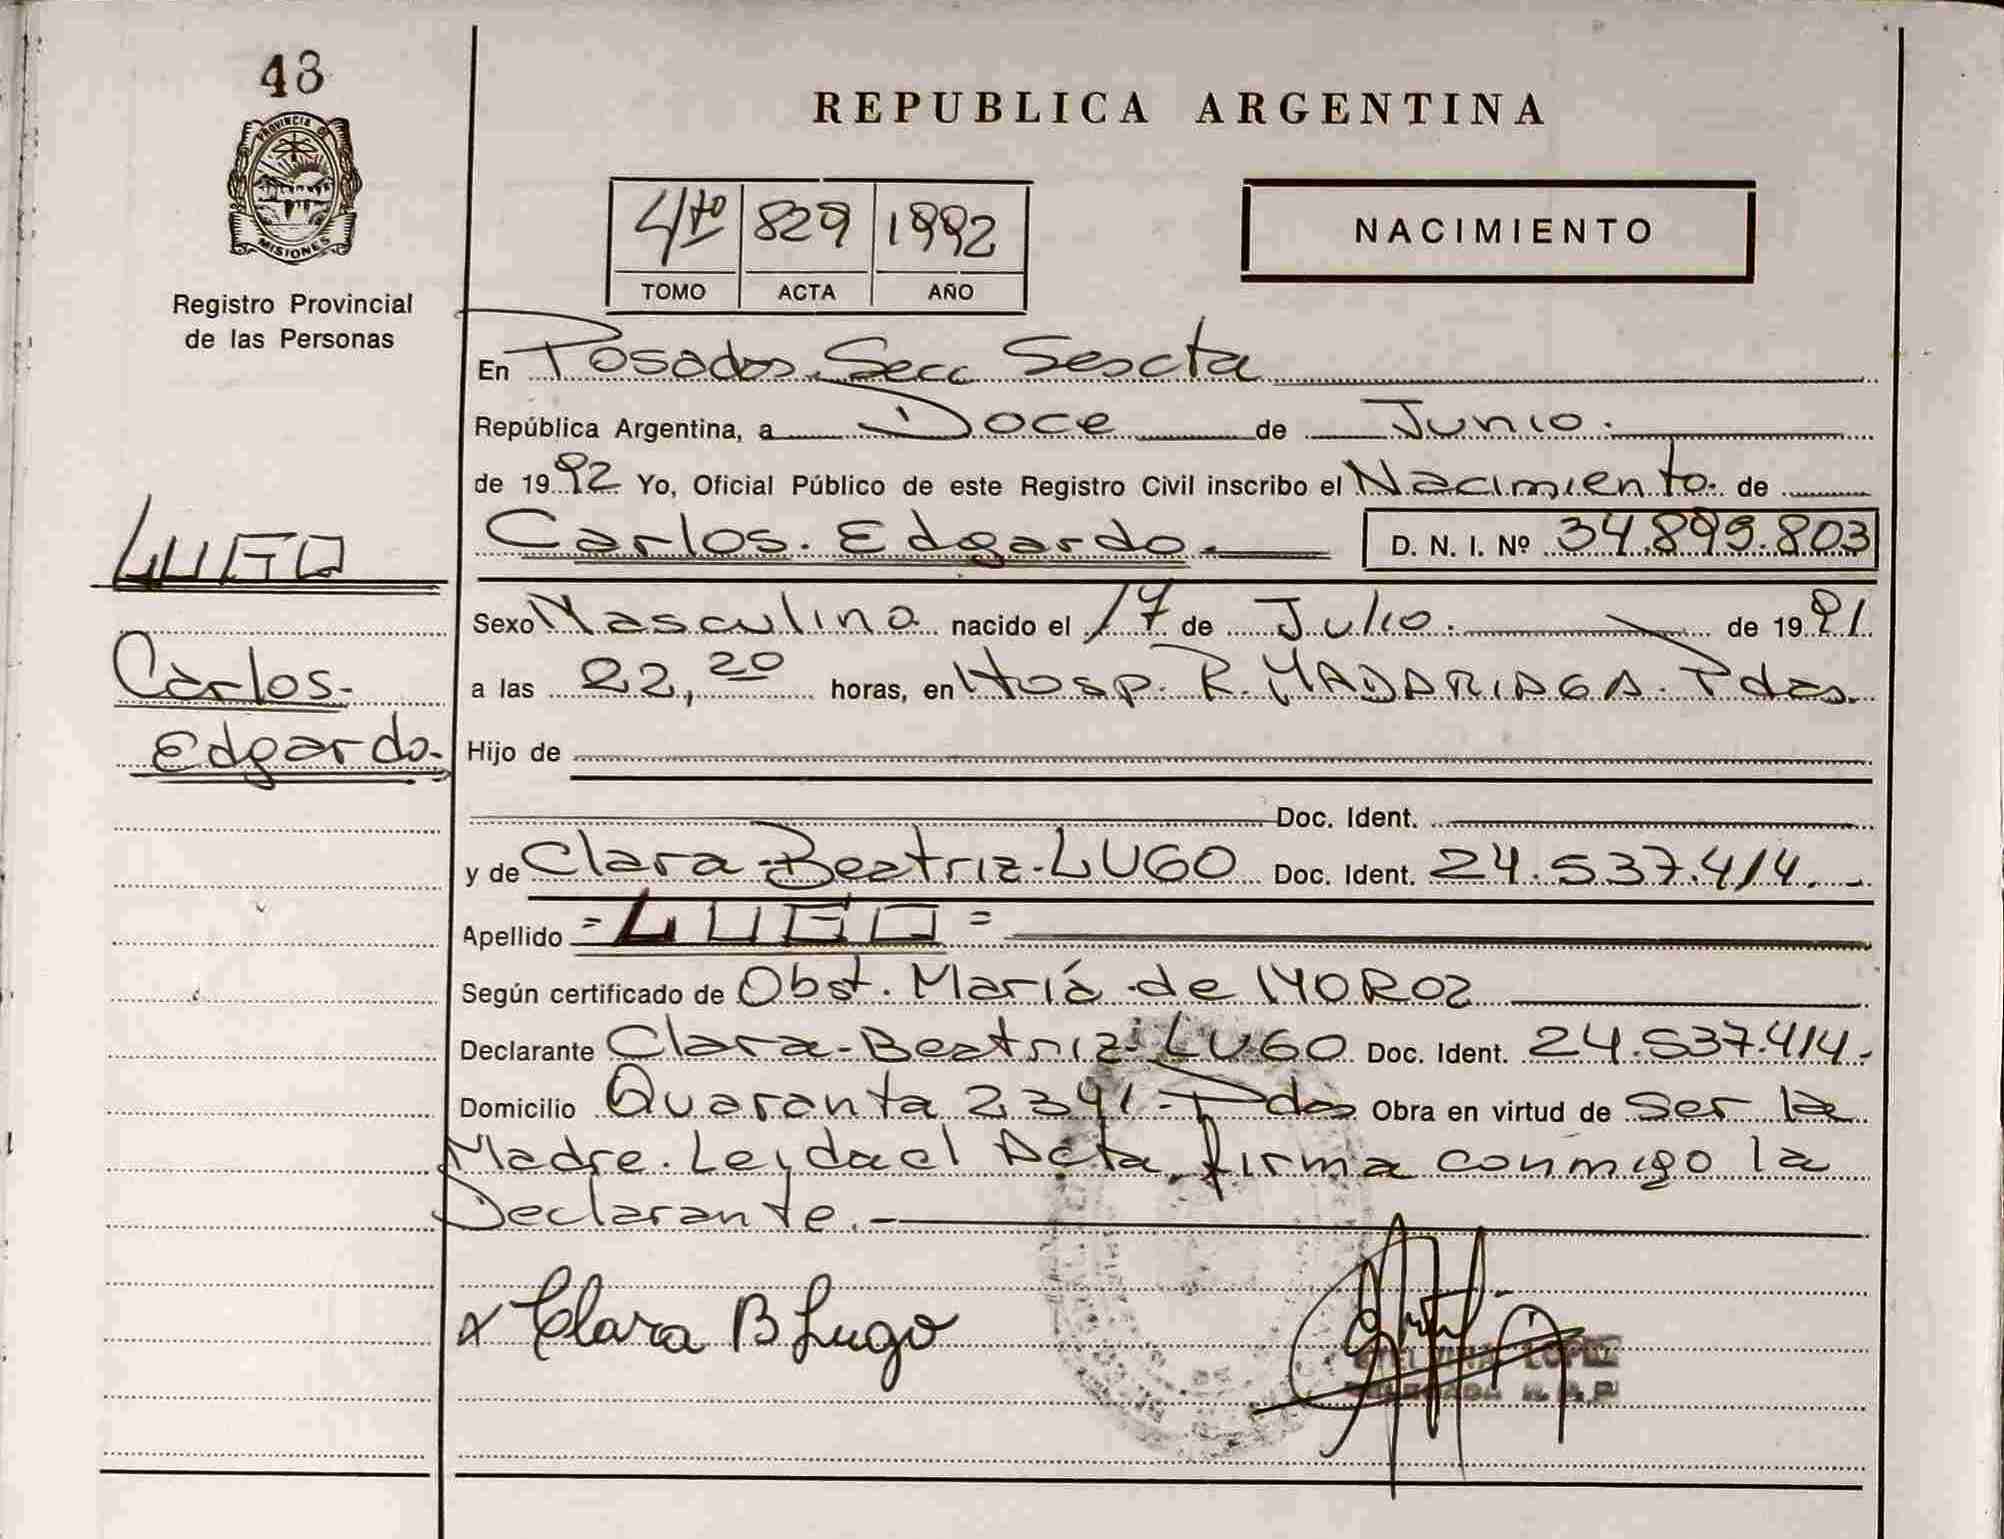 48
PROVINCIA DE
MISIONES
Registro Provincial
de las Personas
LUGO
Carlos.
Edgardo.
REPUBLICA ARGENTINA
4to 829 1992
TOMO ACTA AÑO
NACIMIENTO
En Posadas. Secc Sescta
República Argentina, a Doce de Junio.
de 1992 Yo, Oficial Público de este Registro Civil inscribo el Nacimiento. de
Carlos. Edgardo.- D. N. I. Nº 34.899.803
Sexo Masculino nacido el 17 de Julio. de 1991
a las 22,20 horas, en Hosp. R. MADARIAGA. Pdas.
Hijo de
Doc. Ident.
y de Clara-Beatriz-LUGO Doc. Ident. 24.537.414.-
Apellido =LUGO=
Según certificado de Obst. María de MOROZ
Declarante Clara-Beatriz-LUGO Doc. Ident. 24.537.414-
Domicilio Quaranta 2391-Pdas Obra en virtud de ser la
Madre. Leida el Acta firma conmigo la
Declarante.-
x Clara B Lugo
LOPEZ